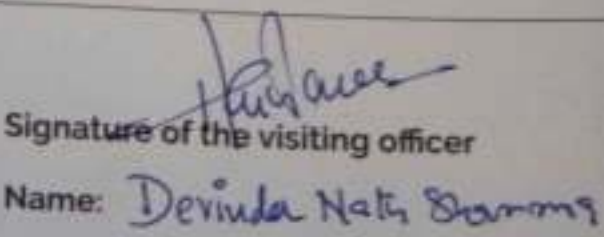 Signature of the visiting officer
Name: Devinda Nath Sharma